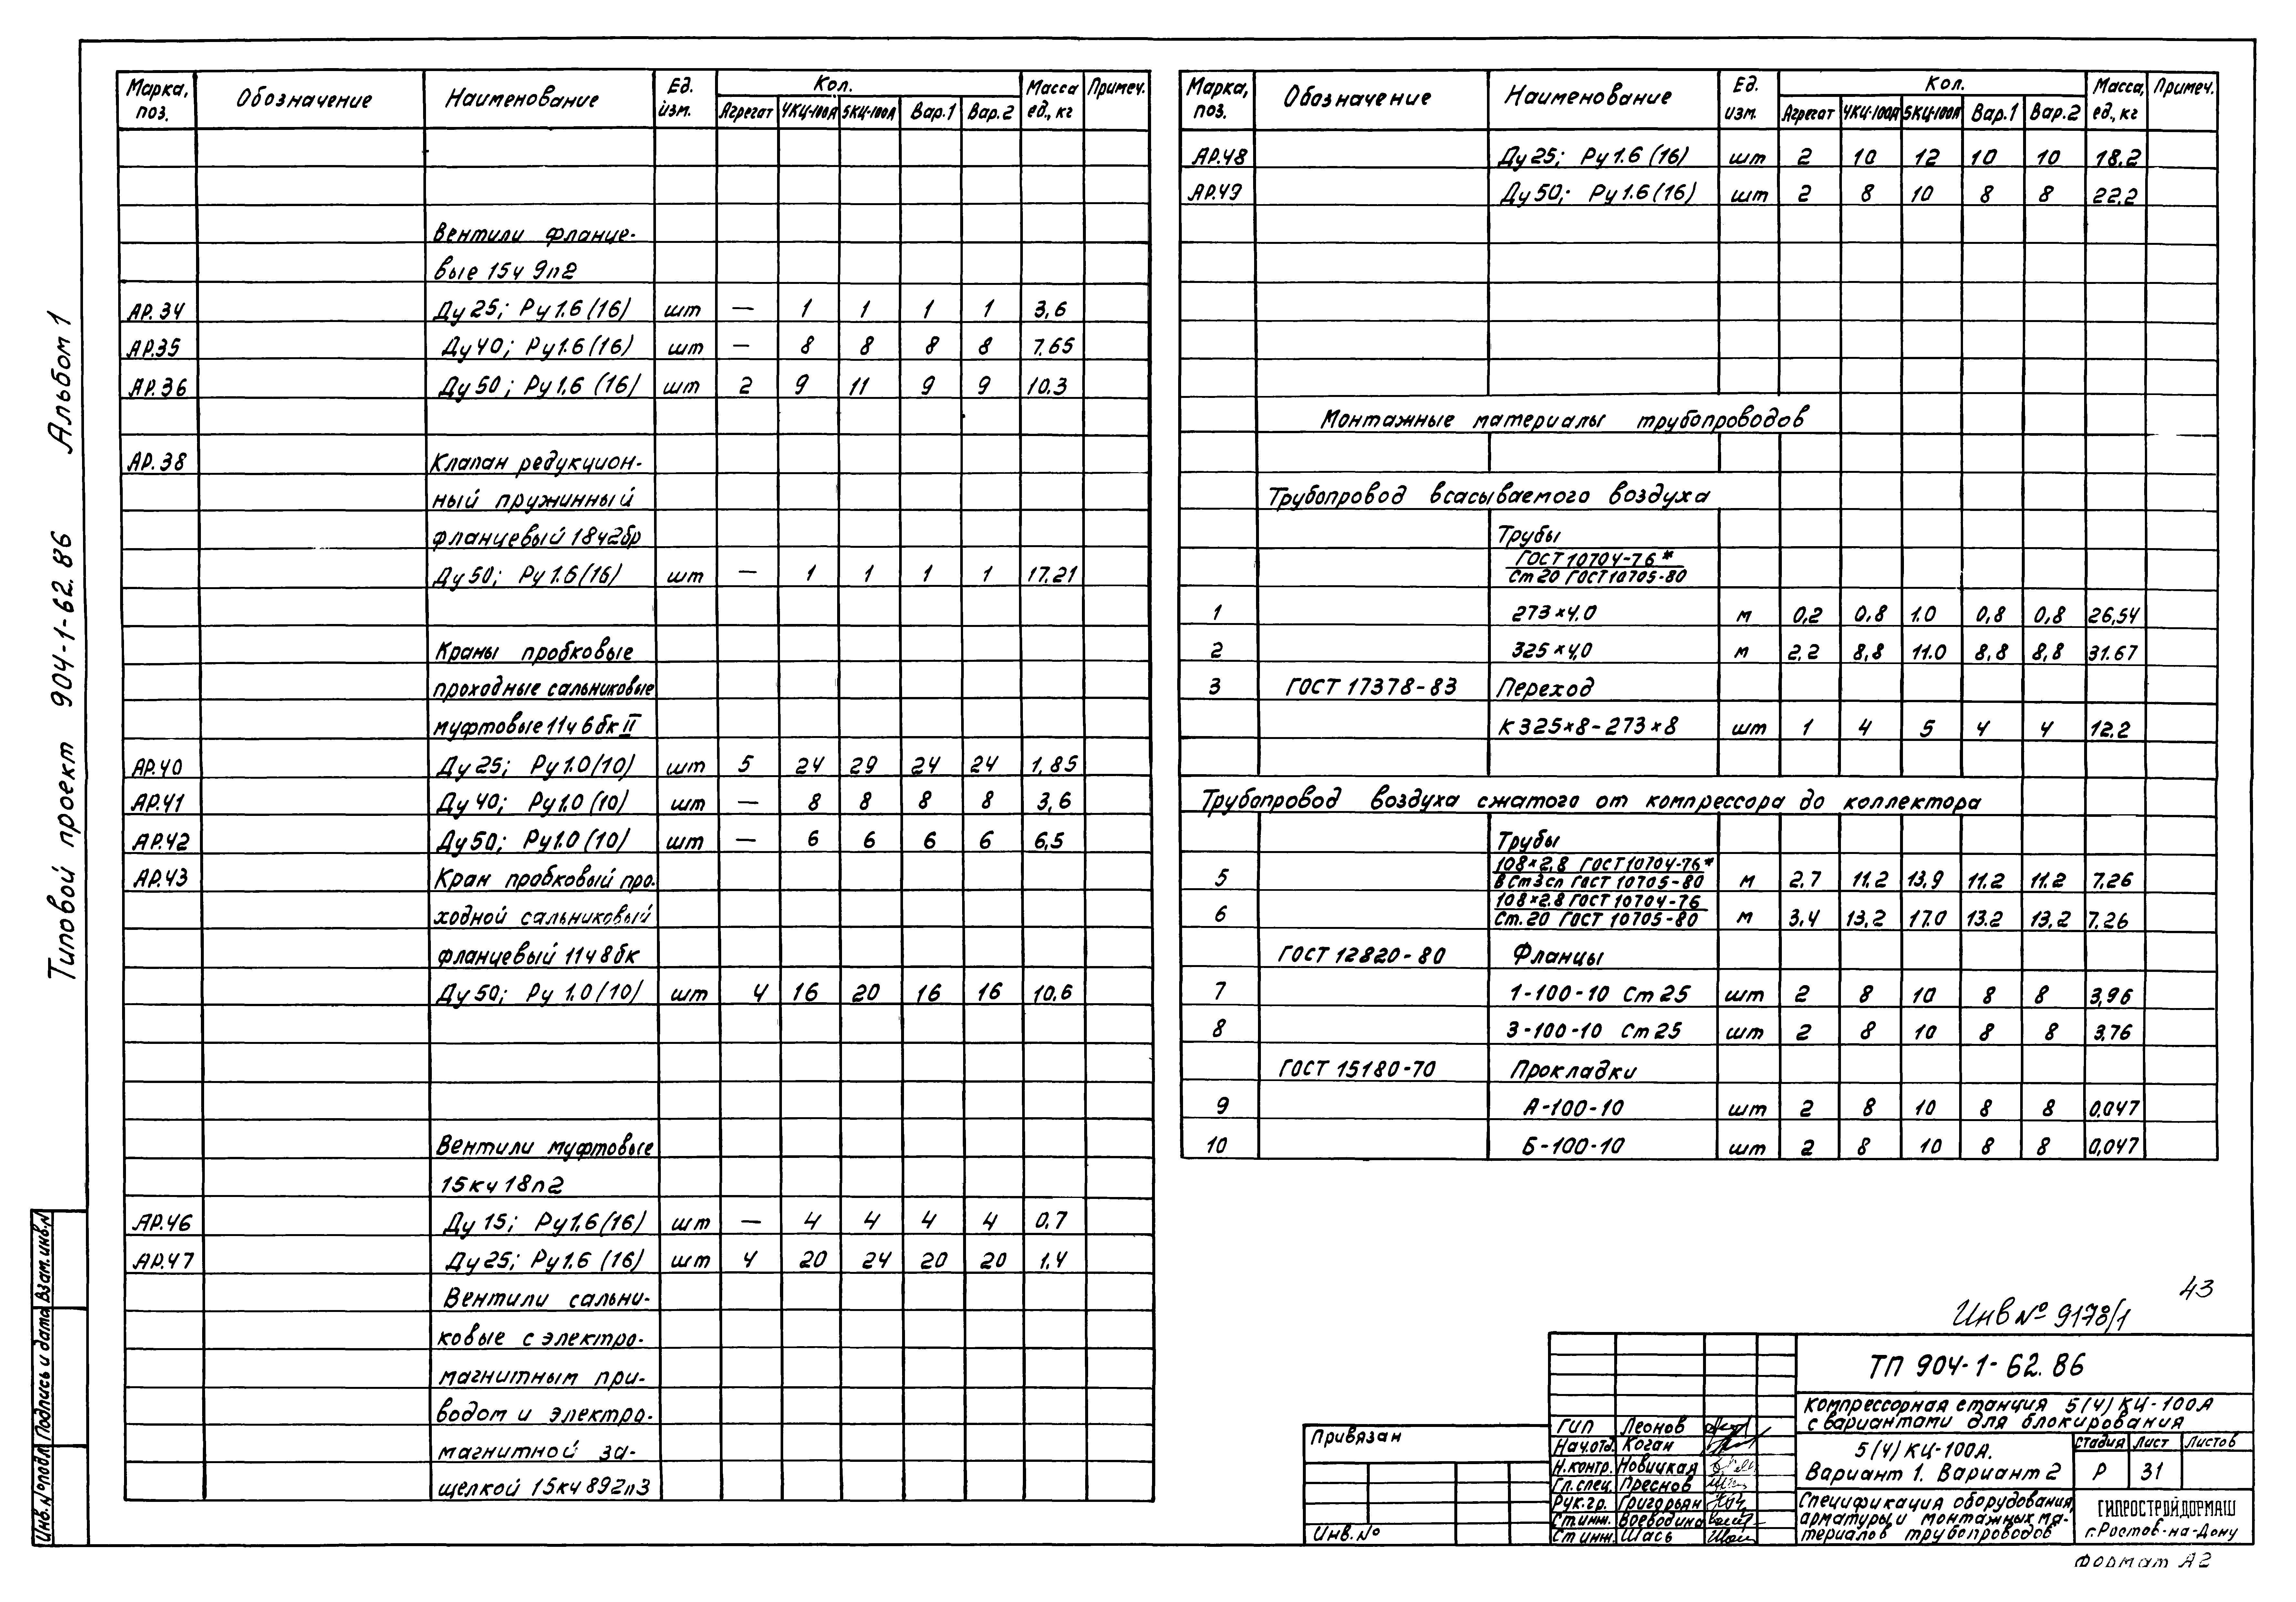 Типовой проект 904-1-62.86 Альбом 1
Марка, поз. Обозначение Наименование Ед. изм. Кол. Масса ед., кг Примеч.
Агрегат 4КЦ-100А 5КЦ-100А Вар.1 Вар.2
Вентили фланце-
вые 15ч 9п2
АР.34 Ду 25; Ру 1.6 (16) шт — 1 1 1 1 3,6
АР.35 Ду 40; Ру 1.6 (16) шт — 8 8 8 8 7.65
АР.36 Ду 50; Ру 1.6 (16) шт 2 9 11 9 9 10.3
АР.38 Клапан редукцион-
ный пружинный
фланцевый 18ч2бр
Ду 50; Ру 1.6 (16) шт — 1 1 1 1 17.21
Краны пробковые
проходные сальниковые
муфтовые 11ч 6 бк II
АР.40 Ду 25; Ру 1.0 (10) шт 5 24 29 24 24 1,85
АР.41 Ду 40; Ру 1.0 (10) шт — 8 8 8 8 3,6
АР.42 Ду 50; Ру 1.0 (10) шт — 6 6 6 6 6,5
АР.43 Кран пробковый про-
ходной сальниковый
фланцевый 11ч 8 бк
Ду 50; Ру 1.0 (10) шт 4 16 20 16 16 10.6
Вентили муфтовые
15кч 18п2
АР.46 Ду 15; Ру 1.6 (16) шт — 4 4 4 4 0.7
АР.47 Ду 25; Ру 1.6 (16) шт 4 20 24 20 20 1,4
Вентили сальни-
ковые с электро-
магнитным при-
водом и электро-
магнитной за-
щелкой 15кч 892п3
Марка, поз. Обозначение Наименование Ед. изм. Кол. Масса, ед., кг Примеч.
Агрегат 4КЦ-100А 5КЦ-100А Вар.1 Вар.2
АР.48 Ду 25; Ру 1.6 (16) шт 2 10 12 10 10 18.2
АР.49 Ду 50; Ру 1.6 (16) шт 2 8 10 8 8 22.2
Монтажные материалы трубопроводов
Трубопровод всасываемого воздуха
Трубы
ГОСТ 10704-76*
Ст 20 ГОСТ 10705-80
1 273×4.0 м 0,2 0,8 1.0 0,8 0,8 26,54
2 325×4,0 м 2,2 8,8 11.0 8,8 8,8 31.67
3 ГОСТ 17378-83 Переход
К 325×8-273×8 шт 1 4 5 4 4 12.2
Трубопровод воздуха сжатого от компрессора до коллектора
Трубы
108×2,8 ГОСТ 10704-76*
5 ВСт3сп ГОСТ 10705-80 м 2,7 11.2 13,9 11.2 11.2 7,26
108×2.8 ГОСТ 10704-76
6 Ст.20 ГОСТ 10705-80 м 3,4 13,2 17.0 13.2 13,2 7,26
ГОСТ 12820-80 Фланцы
7 1-100-10 Ст 25 шт 2 8 10 8 8 3,96
8 3-100-10 Ст 25 шт 2 8 10 8 8 3,76
ГОСТ 15180-70 Прокладки
9 А-100-10 шт 2 8 10 8 8 0,047
10 Б-100-10 шт 2 8 10 8 8 0,047
43
Инв № 9178/1
ТП 904-1-62.86
Компрессорная станция 5(4)КЦ-100А
с вариантами для блокирования
5(4)КЦ-100А.
Вариант 1. Вариант 2
Стадия Лист Листов
Р 31
Спецификация оборудования,
арматуры и монтажных ма-
териалов трубопроводов
ГИПРОСТРОЙДОРМАШ
г.Ростов-на-Дону
ГИП Леонов
Нач.отд. Коган
Н.контр. Новицкая
Гл.спец. Преснов
Рук.гр. Григорьян
Ст.инж. Воеводина
Ст инж. Шась
Привязан
Инв.№
Формат А2
Инв.№ подл. Подпись и дата Взам.инв.№